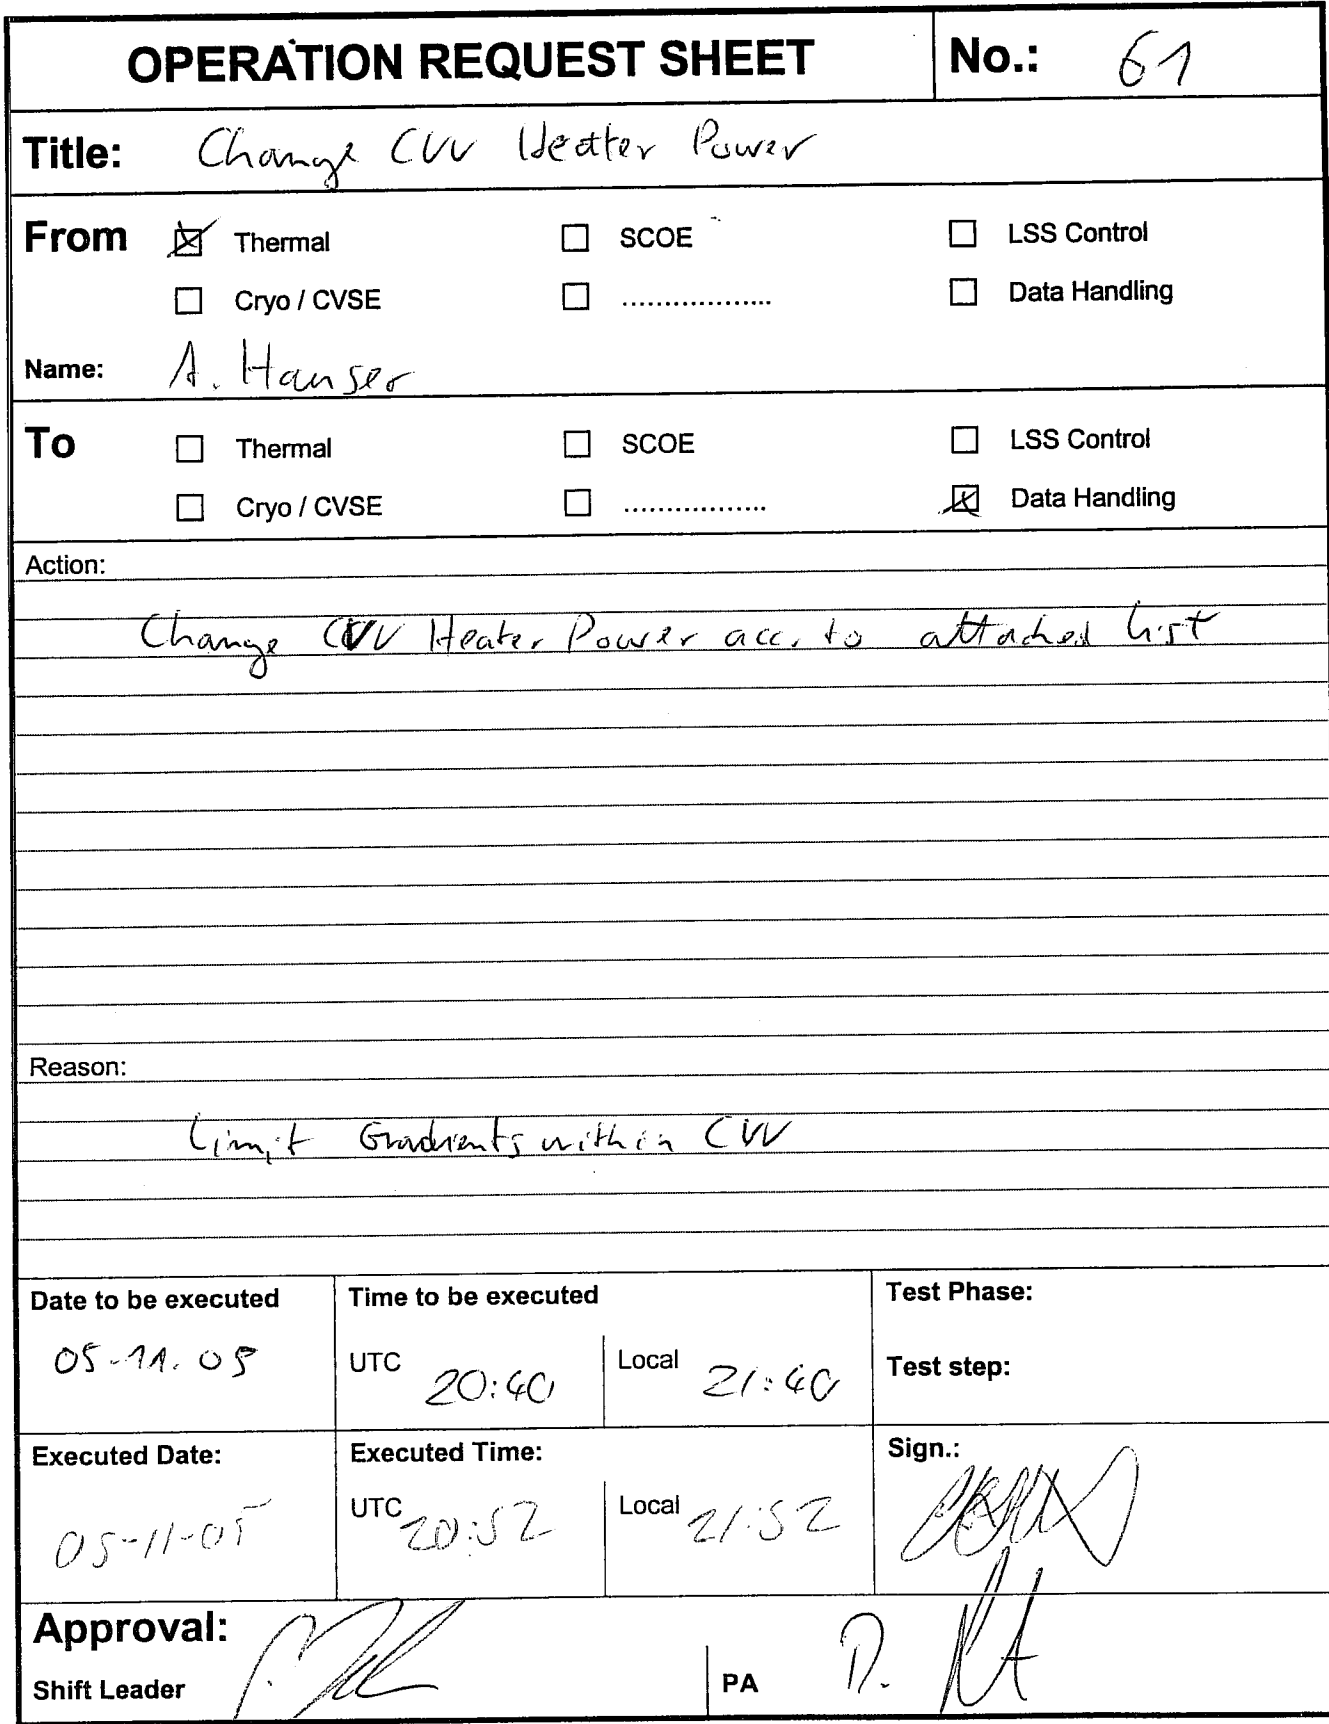 OPERATION REQUEST SHEET No.: 61
Title: Change CVV Heater Power
From ☒ Thermal ☐ SCOE ☐ LSS Control
☐ Cryo / CVSE ☐ .................. ☐ Data Handling
Name: A. Hauser
To ☐ Thermal ☐ SCOE ☐ LSS Control
☐ Cryo / CVSE ☐ ................. ☒ Data Handling
Action:
Change CVV Heater Power acc. to attached list
Reason:
Limit Gradients within CVV
Date to be executed Time to be executed Test Phase:
05-11-05 UTC 20:40 Local 21:40 Test step:
Executed Date: Executed Time: Sign.:
05-11-05 UTC 20:52 Local 21:52
Approval:
Shift Leader PA